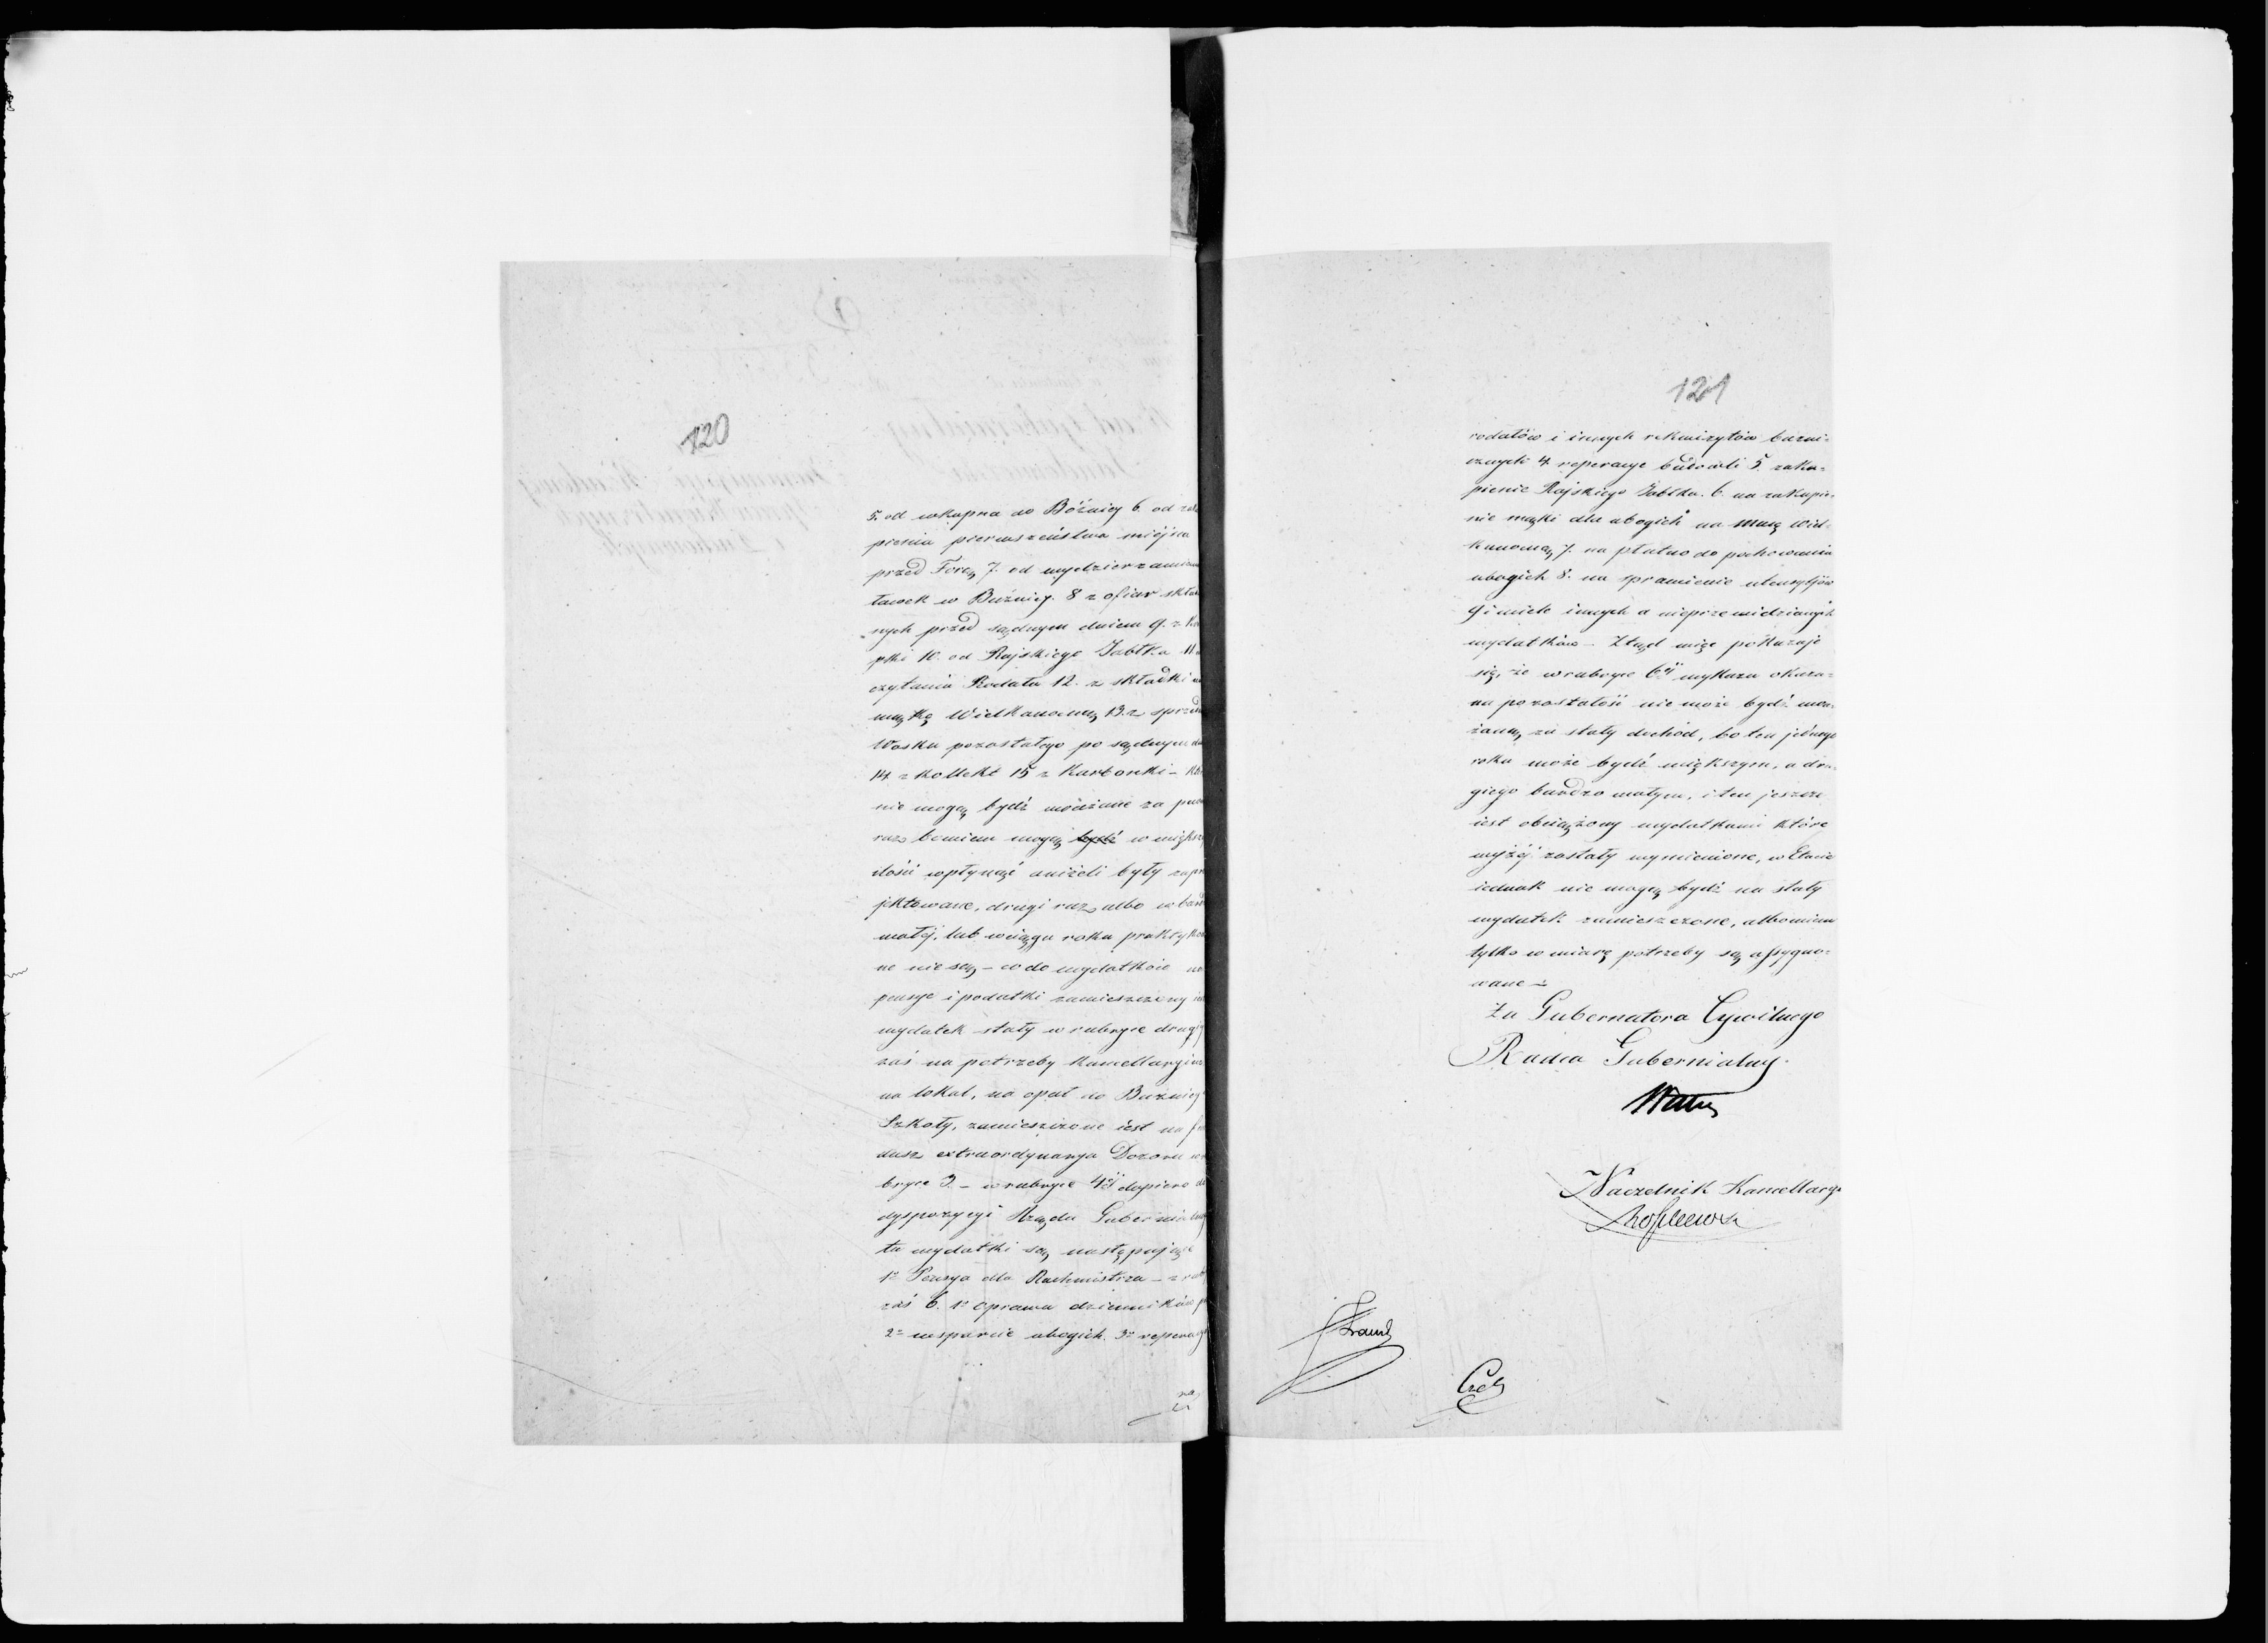 120
5. od wkupna do Bóżnicy 6. od zaku
pienia pierwszeństwa miejsca
przed Torą 7. od wydzierzawien
ławek w Bużnicy. 8 z ofiar skład
nych przed sądnym dniem 9. z Ku
pki 10. od Rajskiego Jabłka 11
czytania Rodału 12. z składki na
mąkę Wielkanocną 13. z sprzeda
Wosku pozostałego po sądnym dn
14 z kollekt 15 z Karbonki – Któ
nie mogą bydź uważane za pew
raz bowiem mogą bydź w większ
ilości wpłynąć aniżeli były zapro
jektowane, drugi raz albo w bard
małej, lub wciągu roku praktyko
ne nie są – co do wydatków na
pensye i podatki zamieszczony
wydatek stały w rubryce drugiej
zaś na potrzeby Kancellaryine
na lokal, na opał do Bużnicy
Szkoły, zamieszczone iest na fun
dusz extraordynarya Dozoru w ru
bryce 3. – w rubryce 4ej dopiero do
dyspozycyi Rządu Gubernialneg
tu wydatki są następujące
1o Pensya dla Rachmistrza – z rub
zaś 6. 1o oprawa dzienników
2o wsparcie ubogich. 3o reperacye
121
rodałów i innych rekwizytów bużni=
cznych 4. reperacye budowli 5. zaku=
pienie Rajskiego Jabłka. 6. na zakupie=
nie mąki dla ubogich na macę Wiel=
kanocną 7. na płutno do pochowania
ubogich 8. na sprawienie utensyljów
9 i wiele innych a nieprzewidzianych
wydatków – Ztąd więc pokazuje
się, że w rubryce 6ej wykazu okaza=
na pozostałość nie może bydź uwa=
żaną za stały dochód, bo ten jednego
roku może bydź większym, a dru=
giego bardzo małym, i ten jeszcze
iest obciążony wydatkami które
wyżej zostały wymienione, w Etacie
iednak nie mogą bydź na stały
wydatek zamieszczone, albowiem
tylko w miarę potrzeby są assygno=
wane –
Za Gubernatora Cywilnego
Radca Gubernialny.
Naczelnik Kancellaryi